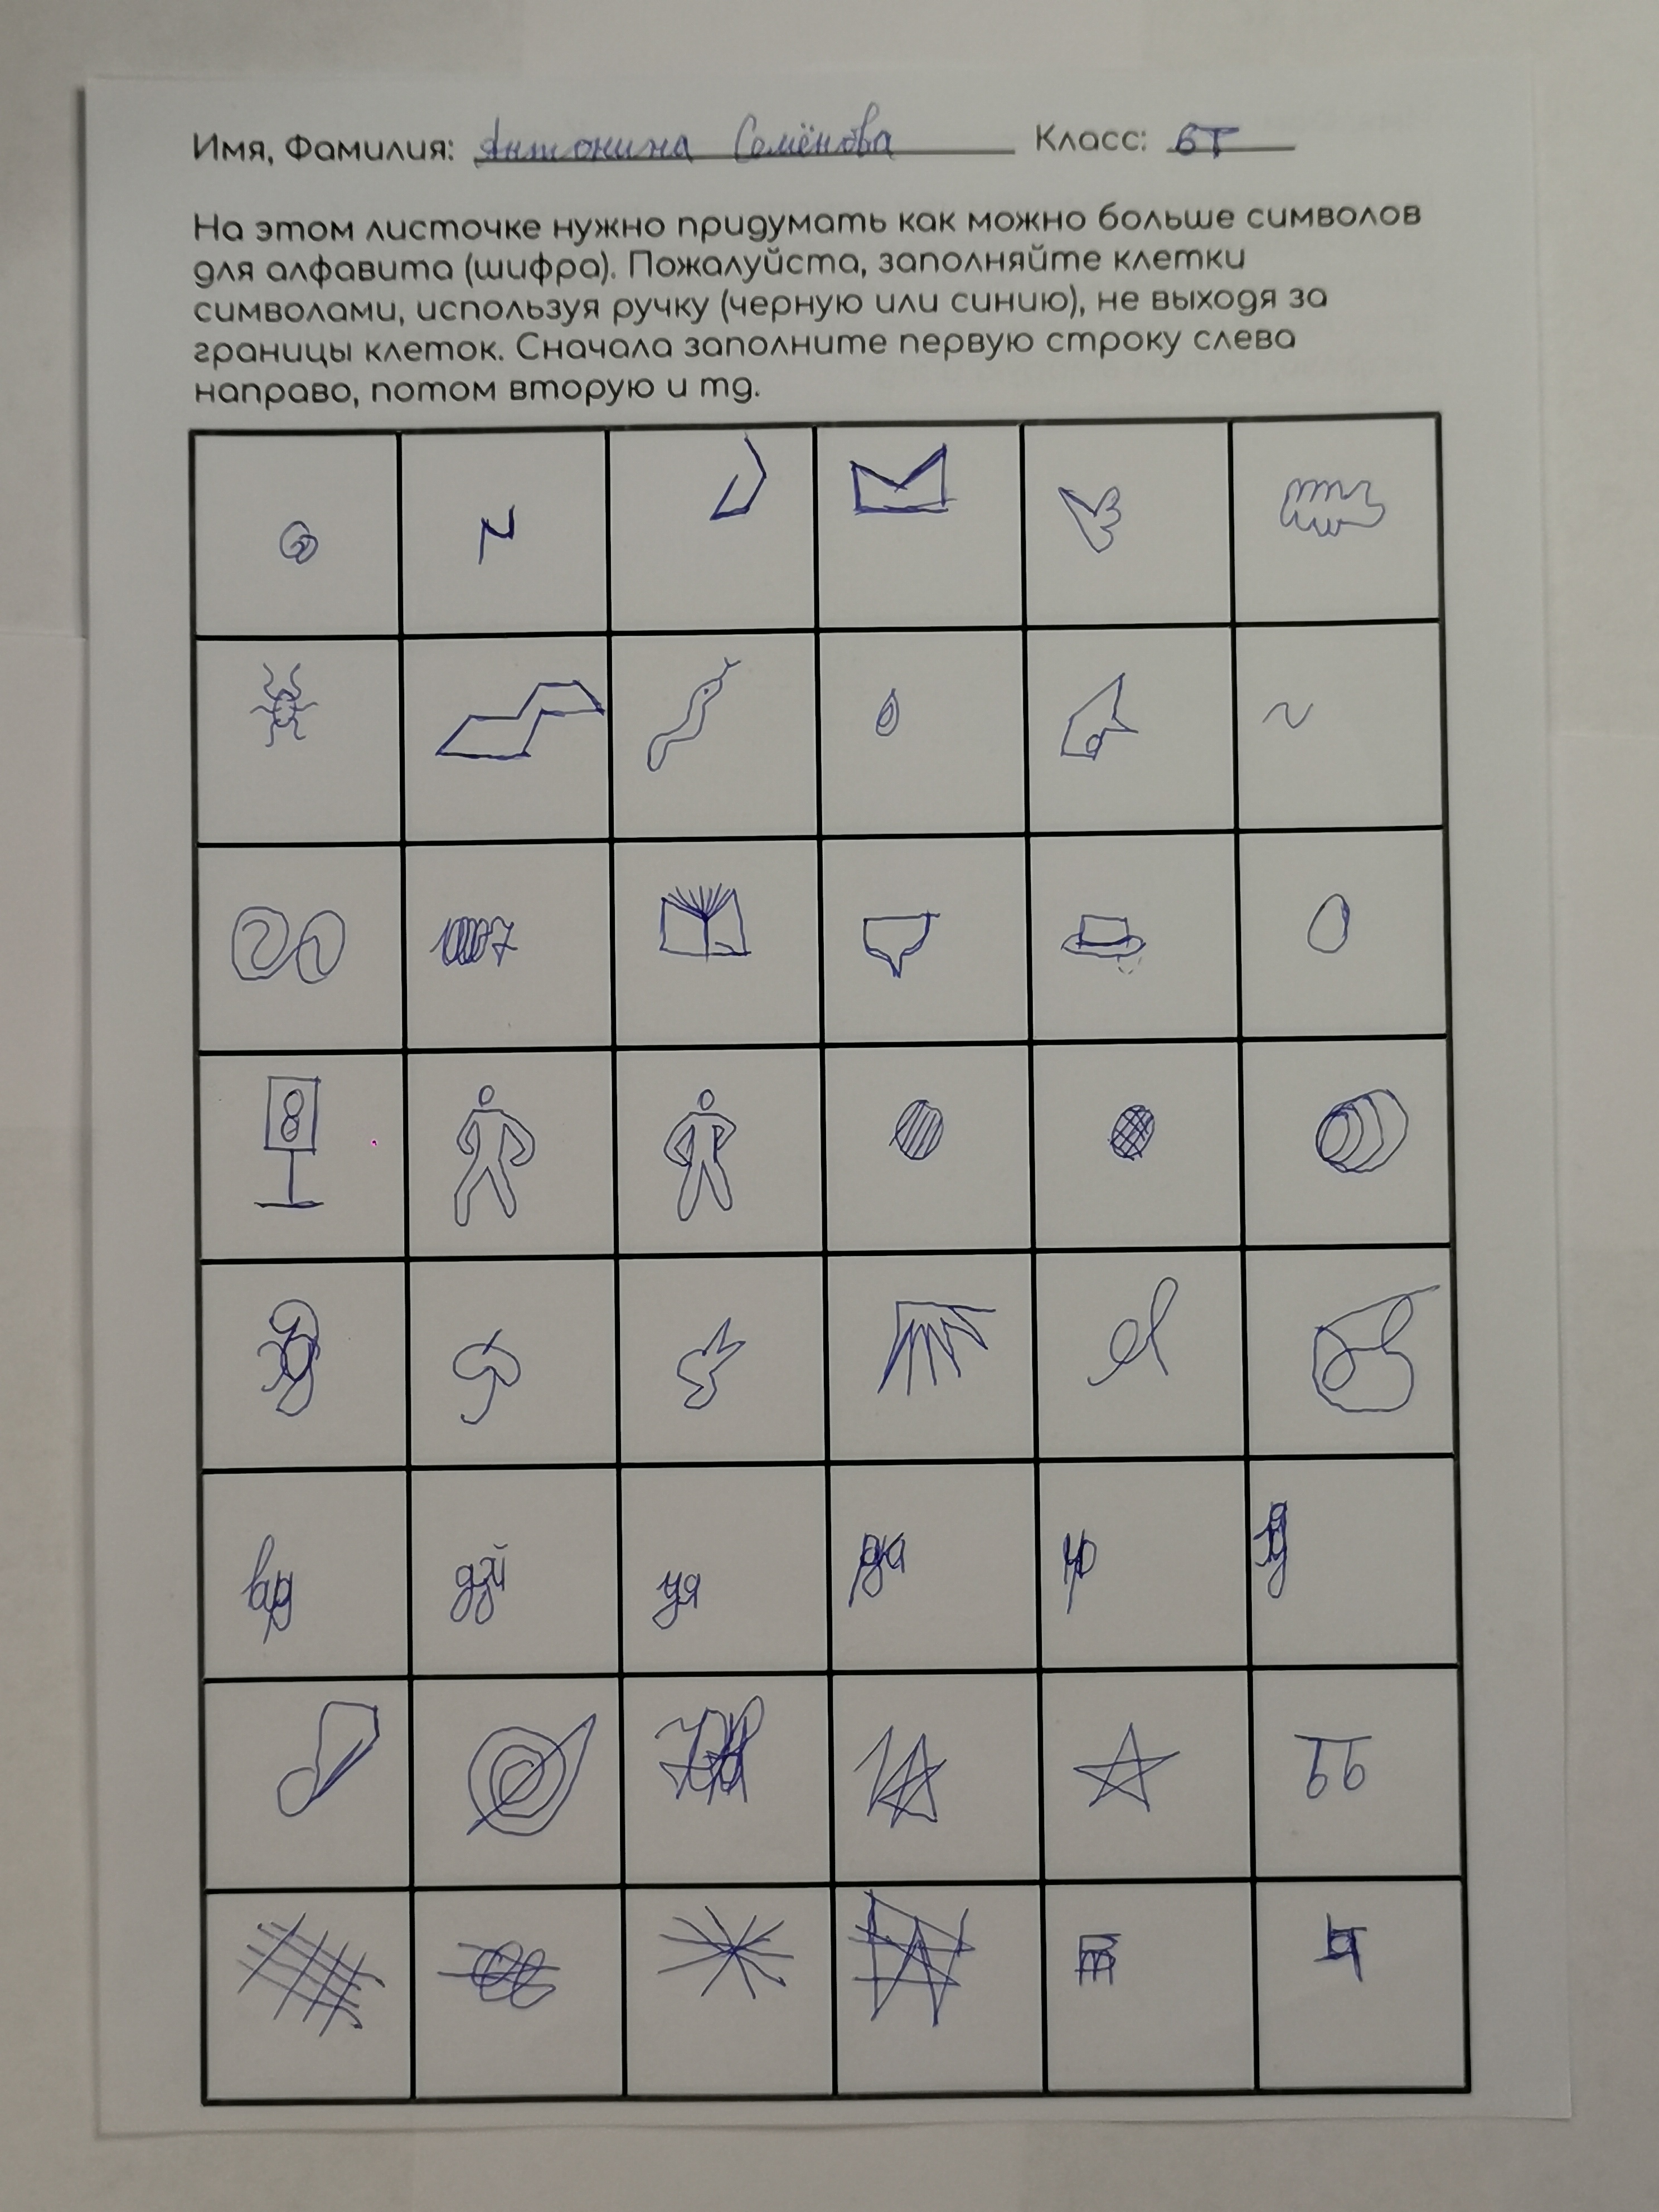 Имя, Фамилия: Антонина Семёнова Класс: 6Т
На этом листочке нужно придумать как можно больше символов
для алфавита (шифра). Пожалуйста, заполняйте клетки
символами, используя ручку (черную или синию), не выходя за
границы клеток. Сначала заполните первую строку слева
направо, потом вторую и тд.